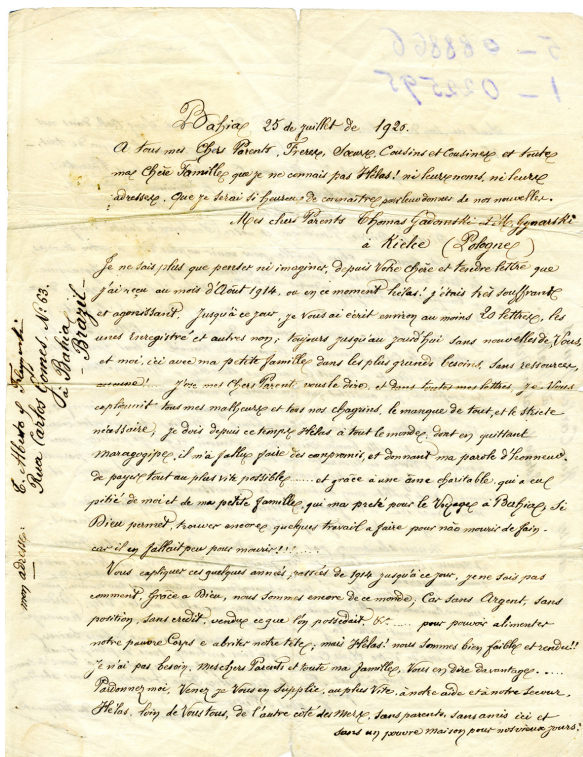 Bahia 25 de juillet de 1920.
A tous mes Chers Parents, Freres, Sœurs, Cousins et Cousines et toute
ma Chère Famille que je ne connais pas Hélas! ni leurs noms, ni leurs
adresses. Que je serai si heureux de connaitre, pour leur donner de nos nouvelles.
Mes chers Parents Thomas Gadomski et M.
à Kielce (Pologne)
Je ne sais plus que penser ni imaginer, depuis Votre Chère et tendre lettre que
j'ai reçu au mois d'Août 1914, ou en ce moment hélas! j'étais très souffrant
et agonissant. Jusqu'à ce jour, je Vous ai écrit environ au moins 20 lettres, les
unes enregistré et autres non; toujours jusqu'au jourd'hui sans nouvelles de Vous,
et moi, ici avec ma petite famille dans les plus grands besoins, sans ressources
aucune!... J'ose mes Chers Parent, vous le dire, et dans toutes mes lettres, je Vous
expliquait tous mes malheurs et tous nos chagrins, le manque de tout, et le stricte
nécessaire, je dois depuis ce temps Hélas à tout le monde, dont en quittant
Maragogipe, il m'a fallu faire des compromis, et donnant ma parole d'honneur
de payer tout au plus vite possible...... et grâce à une âme charitable, qui a eu
pitié de moi et de ma petite famille, qui ma preté pour le Voyage à Bahia, si
Dieu permet trouver encore quelques travail a faire pour não mourir de faim
car il en fallait peu pour mourir!!!......
Vous expliquer ces quelques années, passées de 1914 jusqu'à ce jour, je ne sais pas
comment, Grâce a Dieu, nous sommes encore de ce monde, Car sans Argent, sans
position, sans credit, vendre ce que l'on possedait &c...... pour pouvoir alimenter
notre pauvre Corps e abriter notre tête; mais Hélas! nous sommes bien faibles et rendu!!
Je n'ai pas besoin, mes chers Parents et toute ma famille, Vous en dire davantage.....
Pardonnez moi, Venez je Vous en Supplie, au plus Vite, à notre aide et à notre Secour.
Hélas, loin de Vous tous, de l'autre côté des Mers, sans parents, sans amis ici et
sans un pauvre maison pour nos vieux jours!
mon adresse: Alberto
Rua Carlos Gomes. Nº 63.
à Bahia
Brazil
5 - 088866
1 - 022595